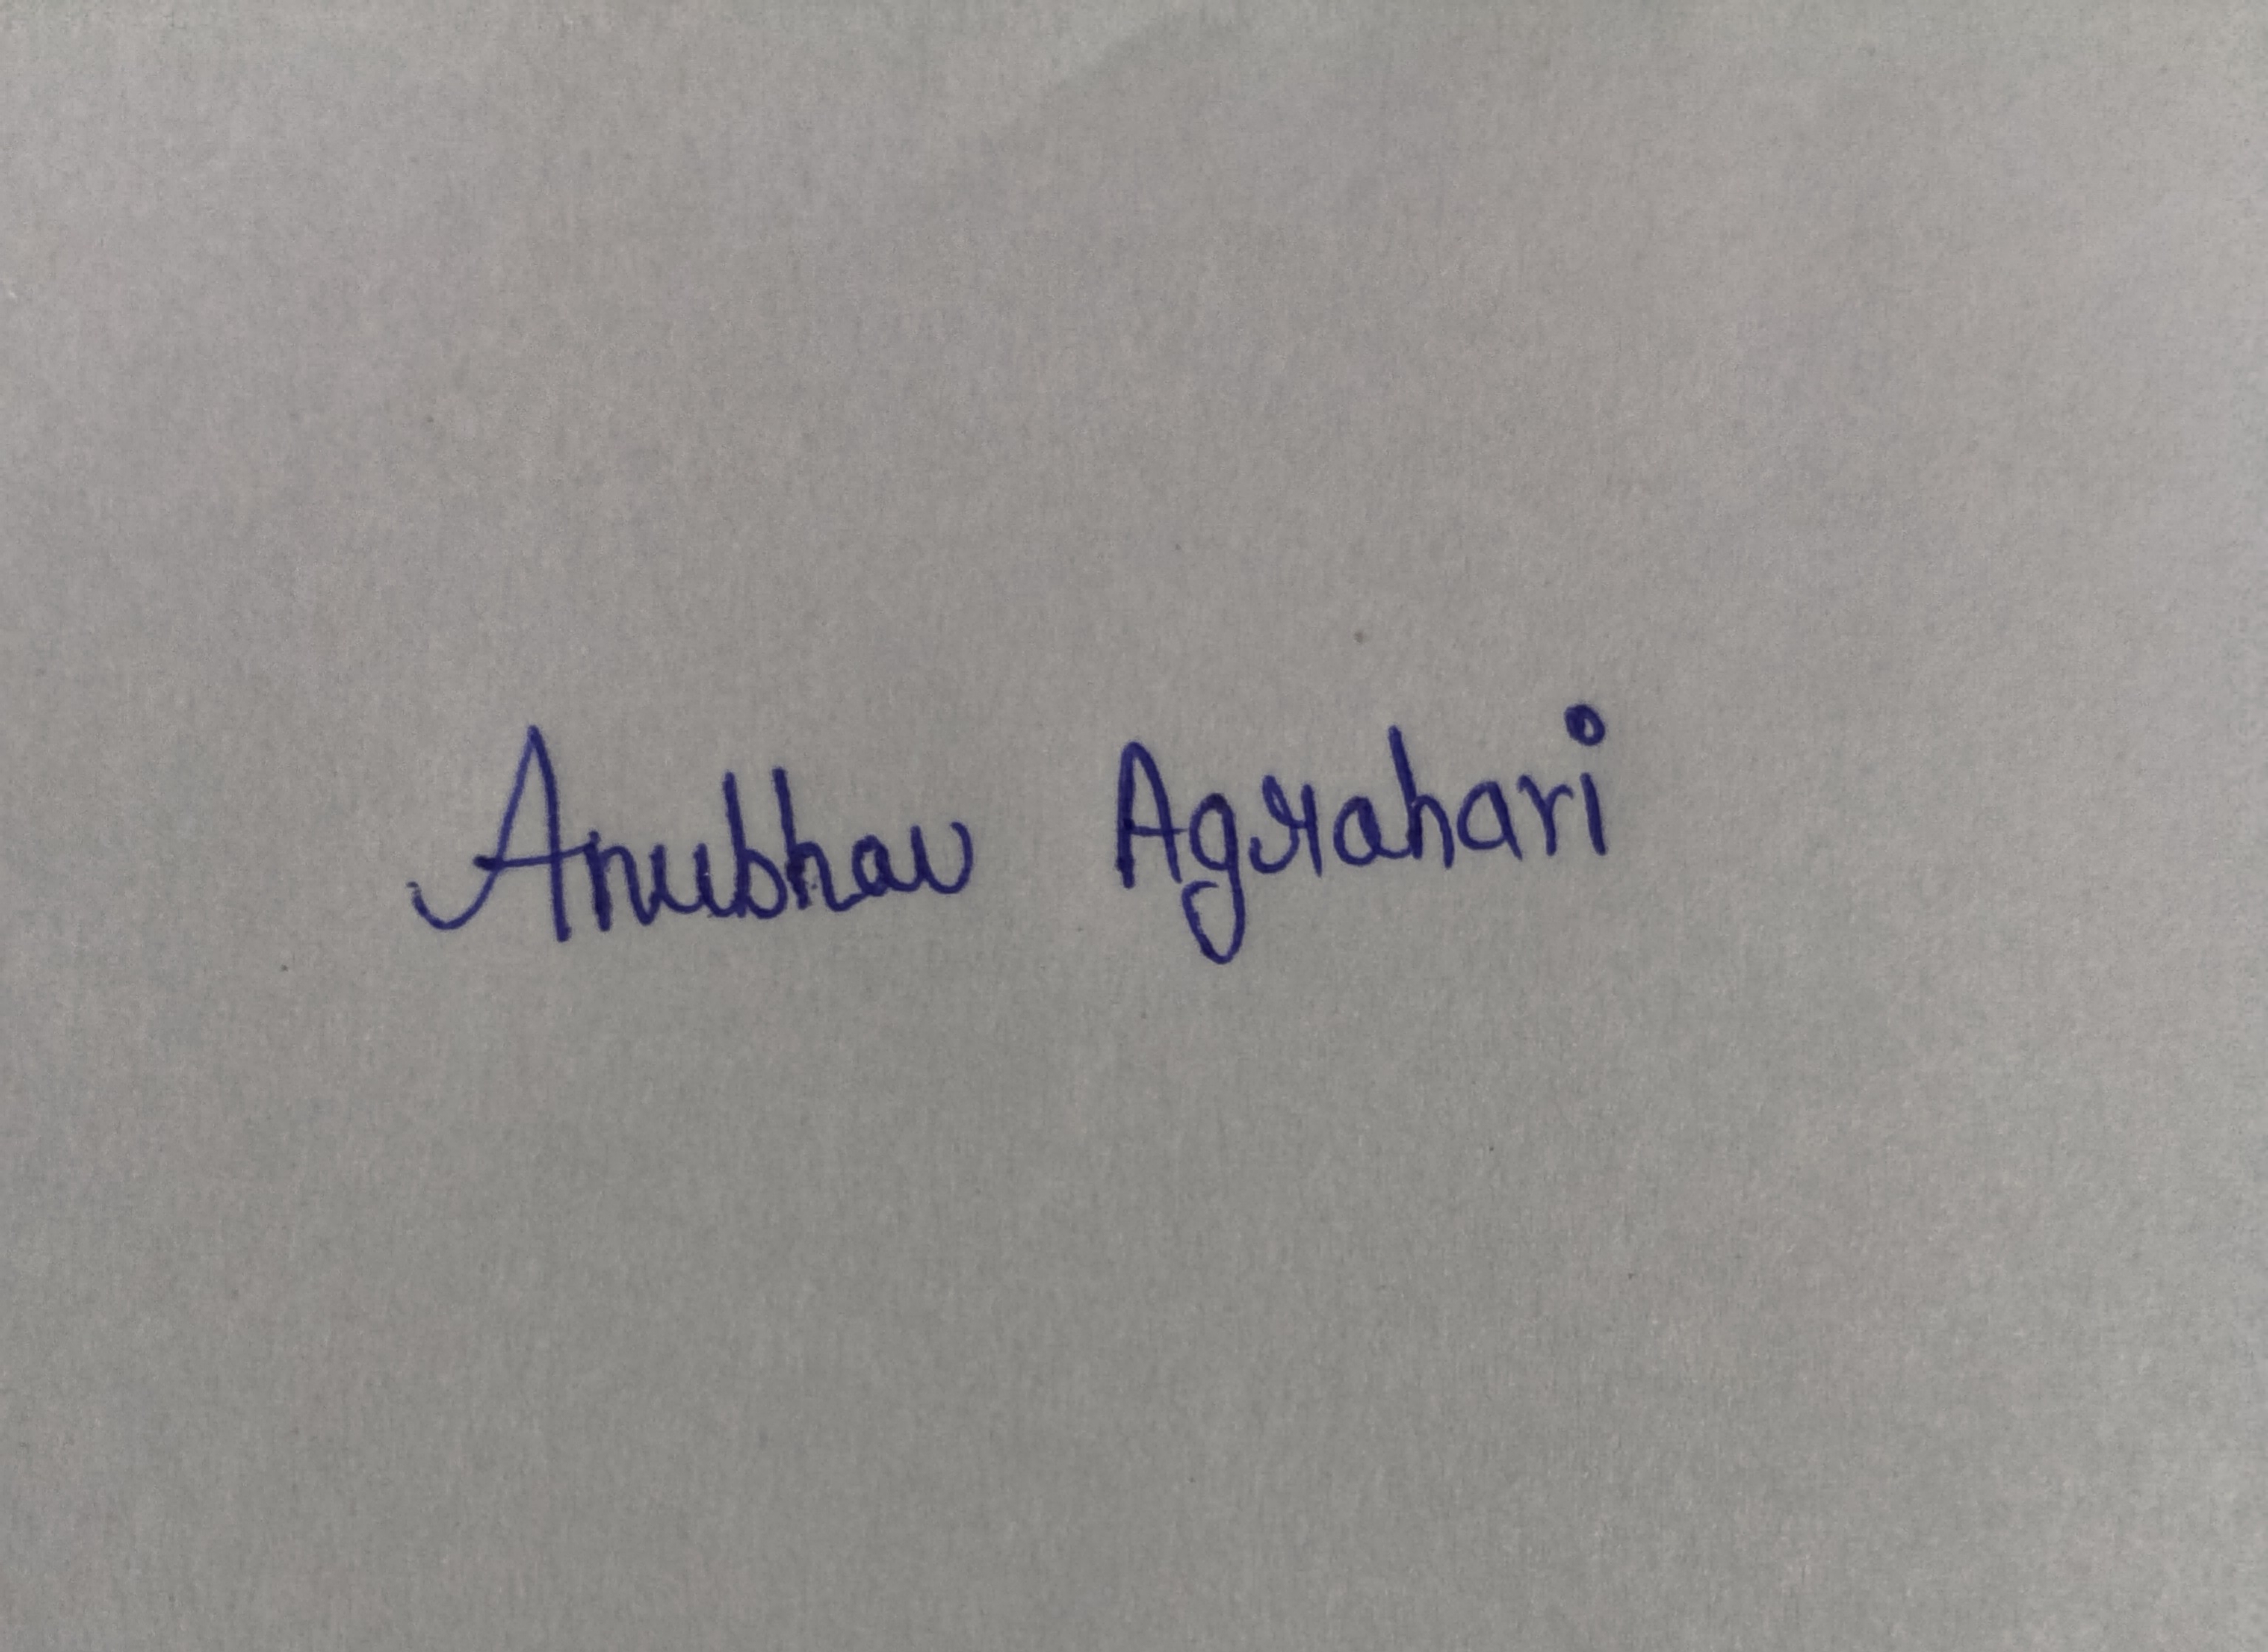 Anubhav Agrahari